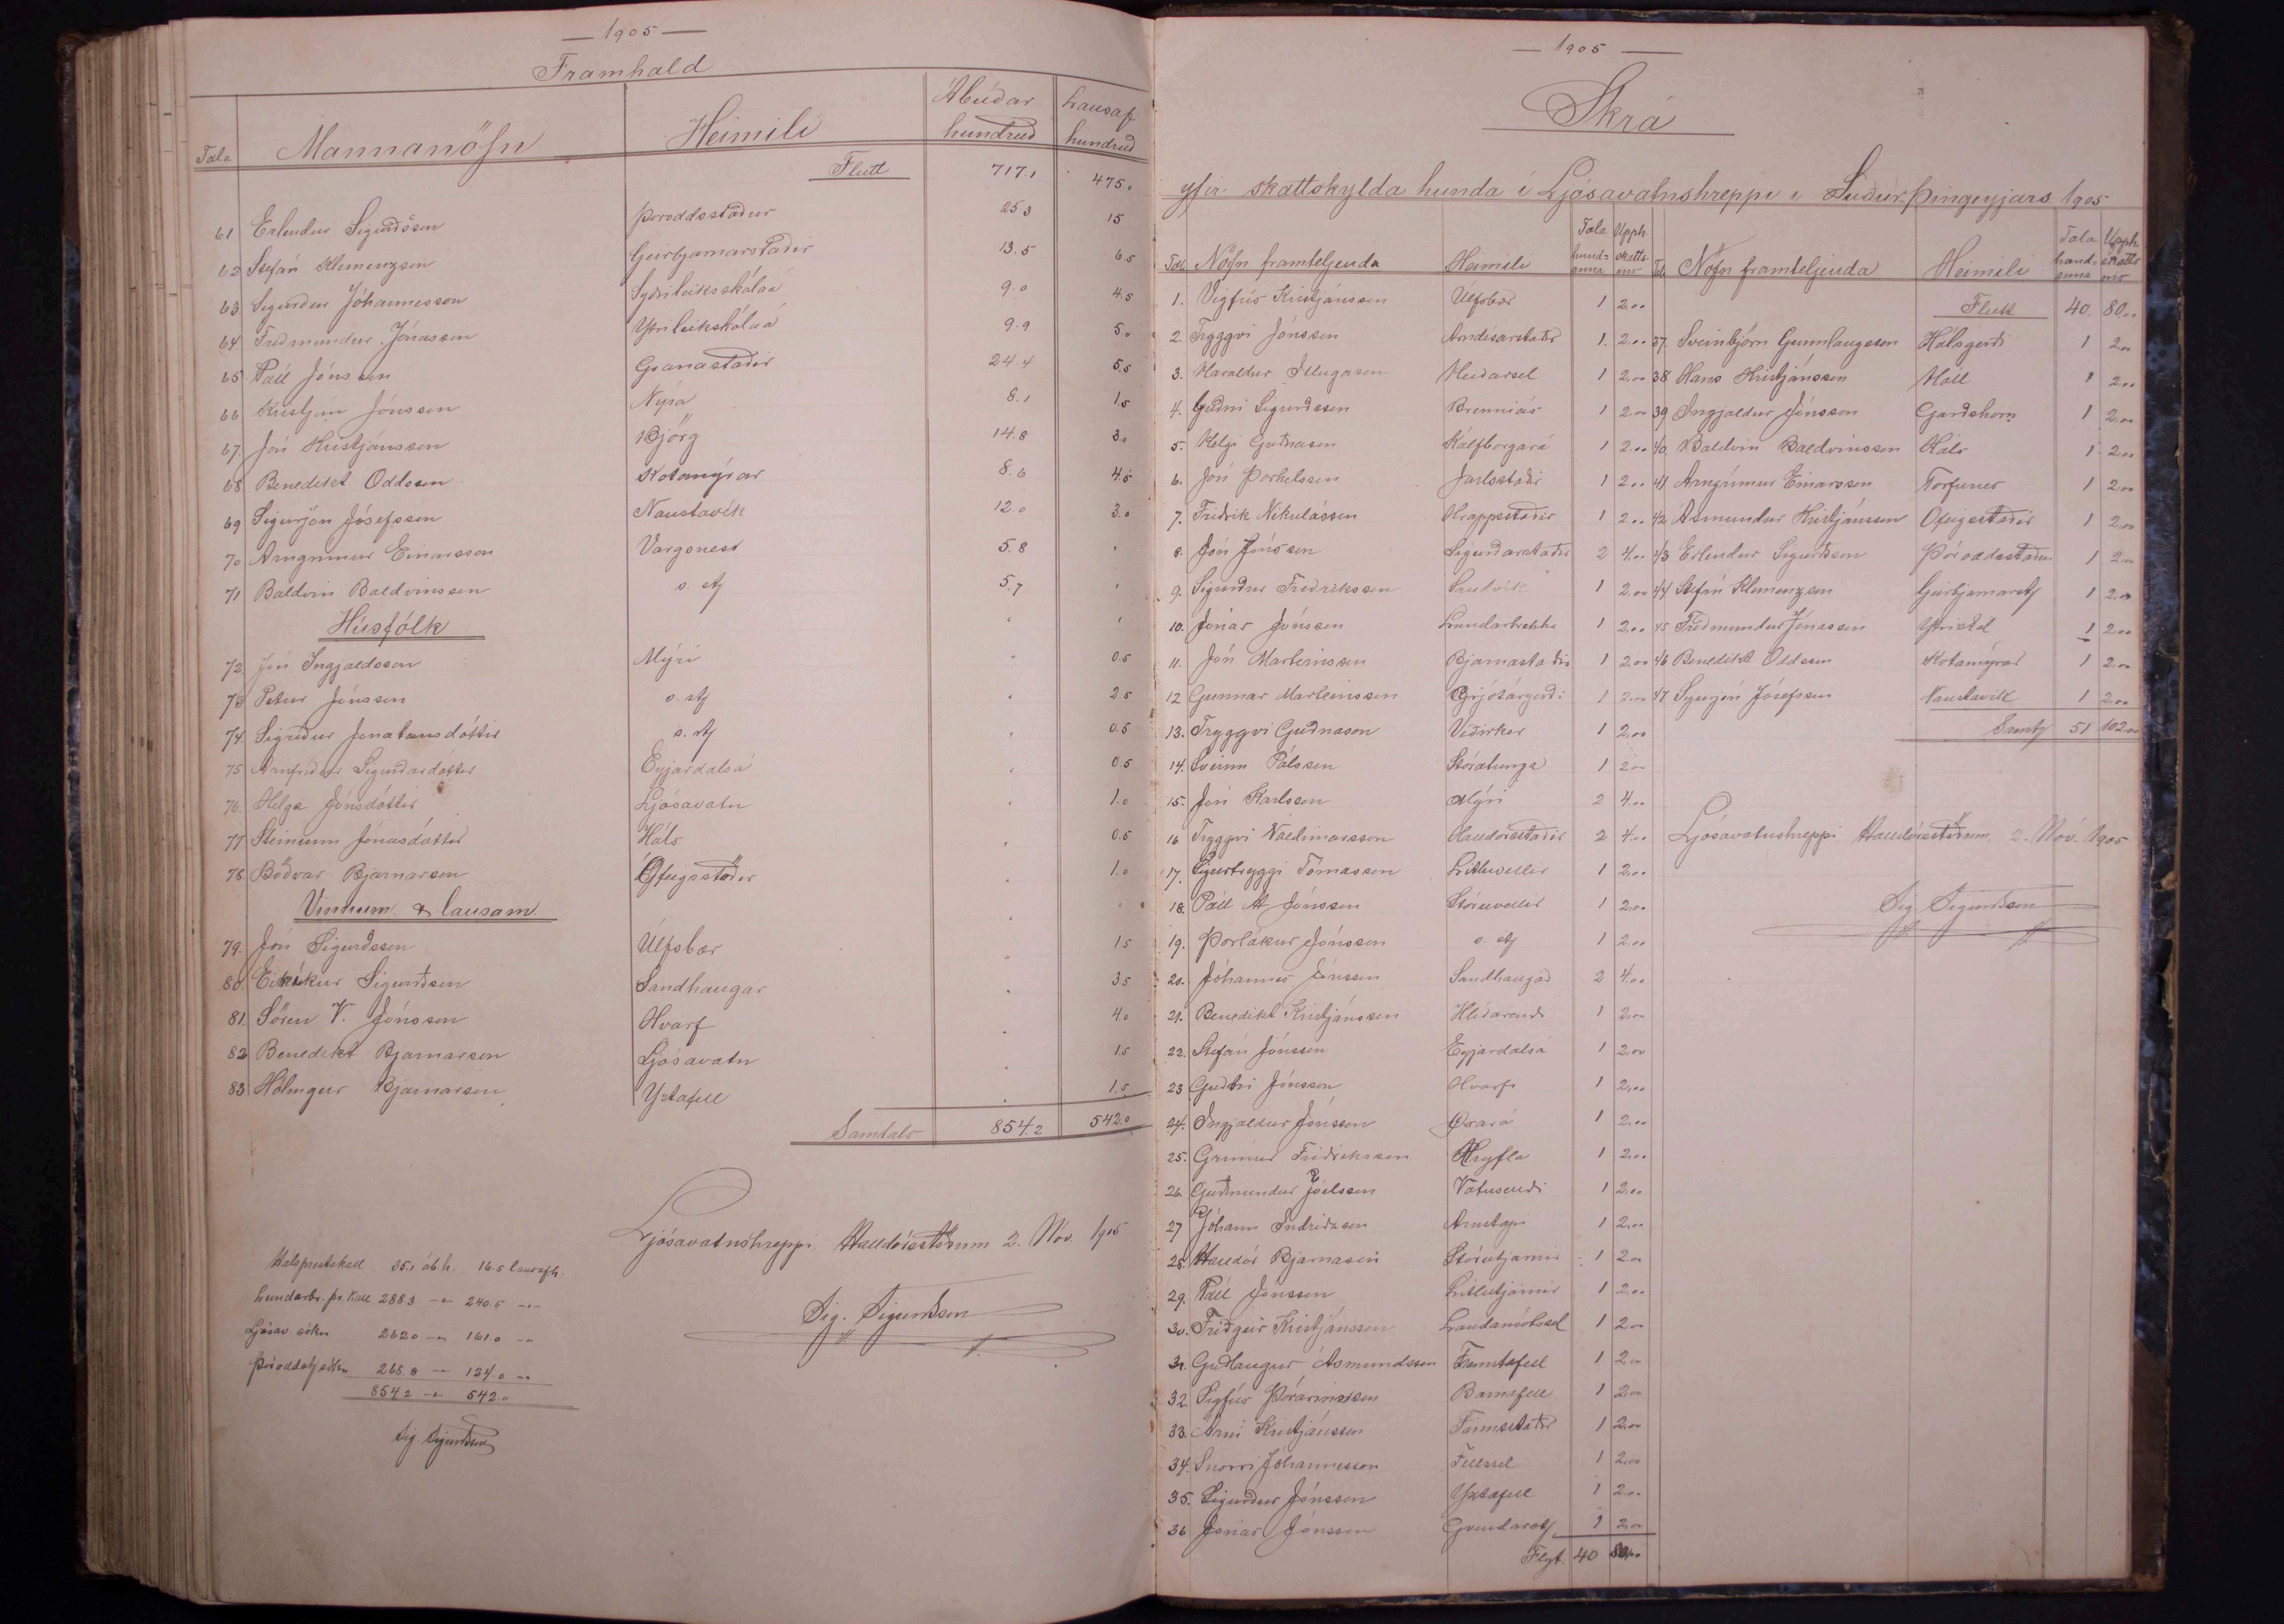 — 1905 —
Framhald
Tala Mannanöfn Heimili Ábúdar hundrud Lausaf hundrud
Flutt 717.1 475.0
61 Erlendur Sigurðsson Þóroddsstadur 25.3 15
62 Stefán Klemenzson Geirbjarnarstadir 13.5 6.5
63 Sigurdur Jóhannesson Sydrileikskálaá 9.0 4.5
64 Fridmundur Jónasson Ytrileikskálaá 9.9 5.0
65 Páll Jónsson Granastadir 24.4 5.5
66 Kristján Jónsson Nýpá 8.1 1.5
67. Jón Kristjánsson Björg 14.8 3.0
68 Benedikt Oddsson Kotamýrar 8.6 4.5
69 Sigurjón Jósefsson Naustavík 12.0 3.0
70 Arngrímur Einarsson Vargsnesi 5.8 "
71 Baldvin Baldvinsson s. st 5.7 "
Húsfólk " "
72. Jón Ingjaldsson Mýri " 0.5
73 Petur Jónsson s. st " 2.5
74. Sigridur Jonatansdóttir s. st " 0.5
75 Arnfridur Sigurdardóttir Eyjardalsá " 0.5
76. Helga Jónsdóttir Ljósavatn " 1.0
77 Steinunn Jónasdóttir Háls " 0.5
78 Bödvar Bjarnarson Ófeigsstödir " 1.0
Vinnum. & lausam. " "
79. Jón Sigurdsson Úlfsbær " 1.5
80. Eirikur Sigurdsson Sandhaugar " 3.5
81. Sören V. Jónsson Hvarf " 4.0
82 Benedikt Bjarnarson Ljósavatn " 1.5
83. Hólmgeir Bjarnarson Yztafell " 1.5
Samtals 854.2 542.0
Ljósavatnshreppi Halldórsstödum 2. Nóv. 1905
Sig. Sigurdsson
Halsprestakall 35.1 áb.h. 16.5 lausafh.
Lundarbr. pr. kall 288.3 -"- 240.5 -"-
Ljósav. sókn 262.0 -"- 161.0 -"-
Þóroddst sókn 268.8 -"- 124.0 -"-
854.2 -"- 542.0
Sig. Sigurdsson
— 1905 —
Skrá
yfir skattskylda hunda í Ljósavatnshreppi í Sudur-Þingeyjars. 1905
Tal. Nöfn framteljenda Heimili Tala hund-anna Upph. skatts-ins
1. Vigfús Kristjánsson Úlfsbær 1 2.00
2. Tryggvi Jónsson Arndísarstadir 1. 2.00
3. Haraldur Illugason Heidarsel 1 2.00
4. Gudni Sigurdsson Brenniás 1 2.00
5. Helgi Gudnason Kálfborgará 1 2.00
6. Jón Þorkelsson Jarlsstadir 1 2.00
7. Fridrik Nikulásson Hrappsstadir 1 2.00
8. Jón Jónsson Sigurdarstadir 2 4.00
9. Sigurdur Fridriksson Sandvik 1 2.00
10. Jónas Jónsson Lundarbrekka 1 2.00
11. Jón Marteinsson Bjarnastadir 1 2.00
12 Gunnar Marteinsson Grjótárgerdi 1 2.00
13. Tryggvi Gudnason Vidirker 1 2.00
14. Sveinn Pálsson Stóratunga 1 2.00
15. Jón Karlsson Mýri 2 4.00
16 Tryggvi Valdimarsson Halldorsstadir 2 4.00
17. Sigurtryggvi Tómasson Litluvellir 1 2.00
18. Páll H Jónsson Stóruvellir 1 2.00
19. Þorlákur Jónsson s. st 1 2.00
20. Jóhannes Jónsson Sandhaugar 2 4.00
21. Benedikt Kristjánsson Hlidarendi 1 2.00
22. Stefán Jónsson Eyjardalsá 1 2.00
23 Gudni Jónsson Hvarfi 1 2.00
24. Ingjaldur Jónsson Öxará 1 2.00
25. Grímur Fridriksson Hryfla 1 2.00
26. Gudmundur Jóelsson Vatnsendi 1 2.00
27 Jóhann Indridason Arnstapi 1 2.00
28. Halldór Bjarnason Stórutjarnir 1 2.00
29. Páll Jónsson Litlutjarnir 1 2.00
30. Fridgeir Kristjánsson Landamótssel 1 2.00
31. Gudlaugur Ásmundsson Fremstafell 1 2.00
32. Sigfús Þórarinsson Barnafell 1 2.00
33. Arni Kristjánsson Finnsstadir 1 2.00
34. Snorri Jóhannesson Fellssel 1 2.00
35. Sigurdur Jónsson Yztafell 1 2.00
36 Jónas Jónsson Grundarst 1 2.00
Flyt. 40 80.00
Tal. Nöfn framteljenda Heimili Tala hund-anna Upph. skatts-ins
Flutt 40. 80.00
37. Sveinbjörn Gunnlaugsson Hálsgerdi 1 2.00
38 Hans Kristjánsson Hóll 1 2.00
39 Ingjaldur Jónsson Gardshorn 1 2.00
40. Baldvin Baldvinsson Háls 1 2.00
41 Arngrímur Einarsson Torfunes 1 2.00
42 Asmundur Kristjánsson Ofeigsstadir 1 2.00
43 Erlendur Sigurdsson Þóroddsstadur 1 2.00
44 Stefán Klemenzson Geirbjarnarst 1 2.00
45 Fridmundur Jónasson Ytriskál 1 2.00
46 Benedikt Oddsson Kotamýrar 1 2.00
47 Sigurjón Jósefsson Naustavík 1 2.00
Samt 51 102.00
Ljósavatnshreppi Halldórsstödum 2. Nóv. 1905
Sig. Sigurdsson